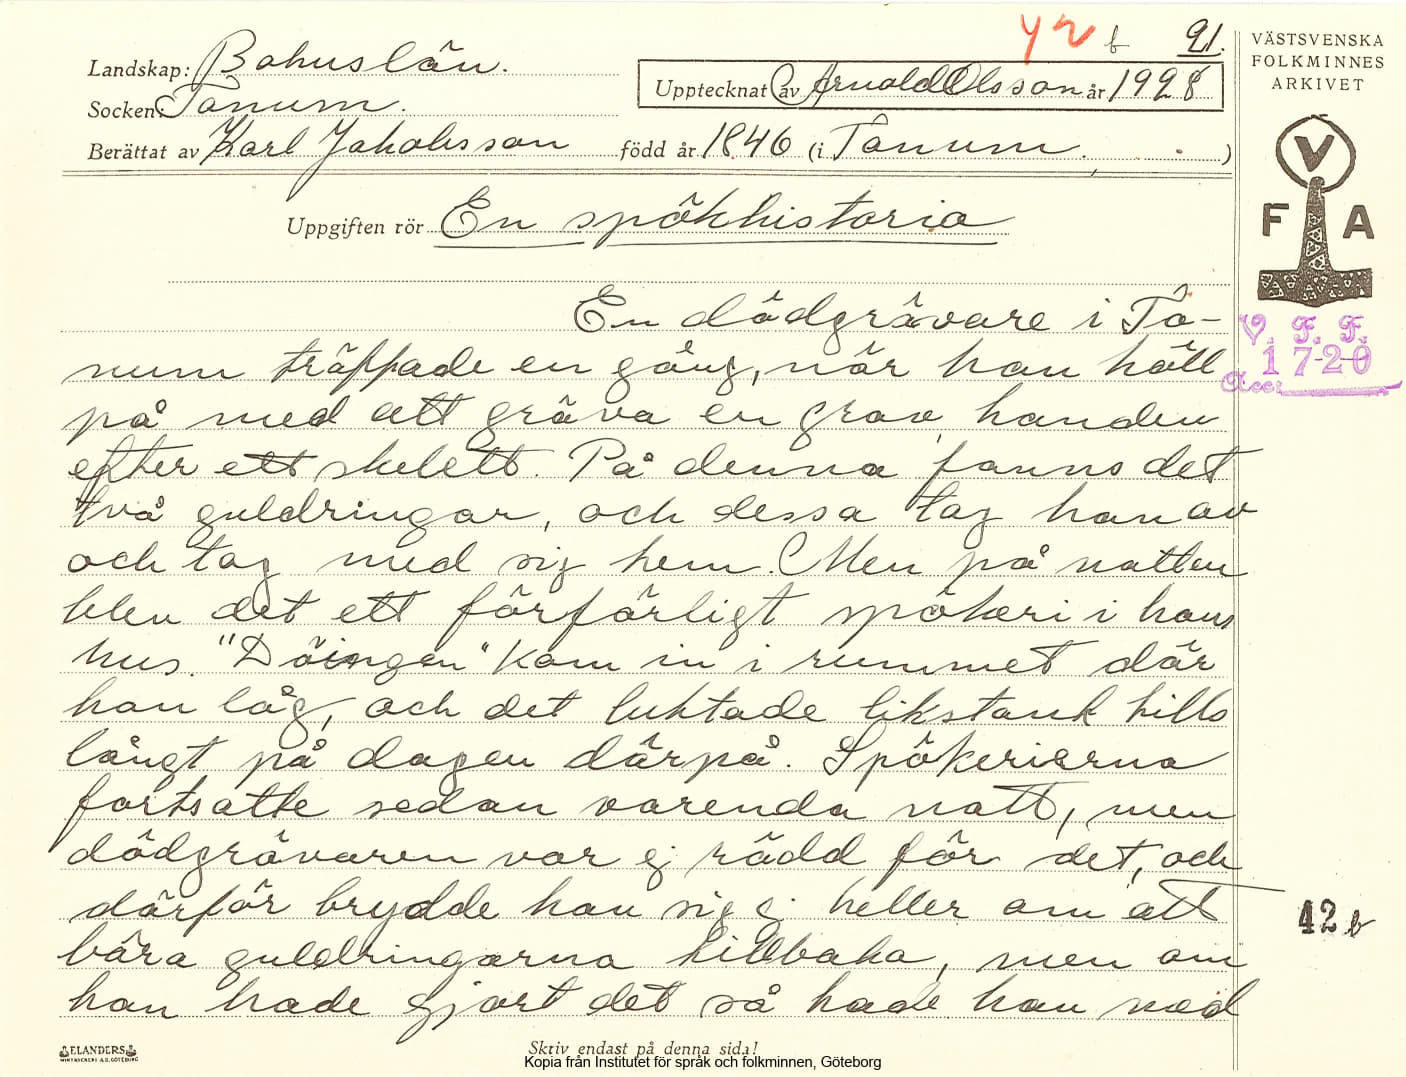 42 b 91.
VÄSTSVENSKA
FOLKMINNES
ARKIVET
Landskap: Bohuslän.
Upptecknat av Arnold Olsson år 1928
Socken: Tanum.
Berättat av Karl Jakobsson född år 1846 (i Tanum. )
V
F A
Uppgiften rör En spökhistoria
V. F. F.
Acc: 1720
En dödgrävare i Ta-
num träffade en gång, når han höll
på med att gräva en grav handen
efter ett skelett. På denna fanns det
två guldringar, och dessa tag han av
och tag med sig hem. Men på natten
blev det ett förfärligt spökeri i hans
hus. "Döingen" kom in i rummet där
han låg, och det luktade likstank hills
långt på dagen därpå. Spökerierna
fortsatte sedan varenda natt, men
dödgrävaren var ej rädd för det, och
därför brydde han sig ej heller om att
42 b
bära guldringarna tillbaka, men om
han hade gjort det så hade han nod
ELANDERS
Skriv endast på denna sida!
Kopia från Institutet för språk och folkminnen, Göteborg